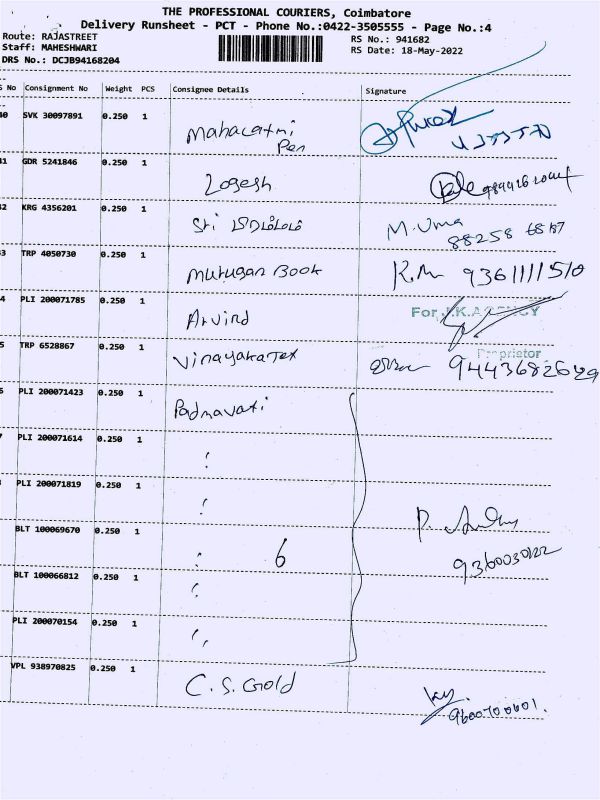 THE PROFESSIONAL COURIERS, Coimbatore
Delivery Runsheet - PCT - Phone No.:0422-3505555 - Page No.:4
Route: RAJASTREET
RS No.: 941682
Staff: MAHESHWARI
RS Date: 18-May-2022
DRS No.: DCJB94168204
S No Consignment No Weight PCS Consignee Details Signature
40 SVK 30097891 0.250 1 Mahalaxmi
Pen
41 GDR 5241846 0.250 1 Logesh
42 KRG 4356201 0.250 1 Sri M.Uma
88258
43 TRP 4050730 0.250 1 Murugan Book K.M 9361111510
4 PLI 200071785 0.250 1 Arvind
For J.K.AGENCY
Proprietor
5 TRP 6528867 0.250 1 Vinayaka Tex 9443682629
6 PLI 200071423 0.250 1 Padmavati
7 PLI 200071614 0.250 1 :
PLI 200071819 0.250 1 :
P.
BLT 100069670 0.250 1 : 6
9360030122
BLT 100066812 0.250 1 :
PLI 200070154 0.250 1 ,,
VPL 938970825 0.250 1 C.S.Gold
9600700601.